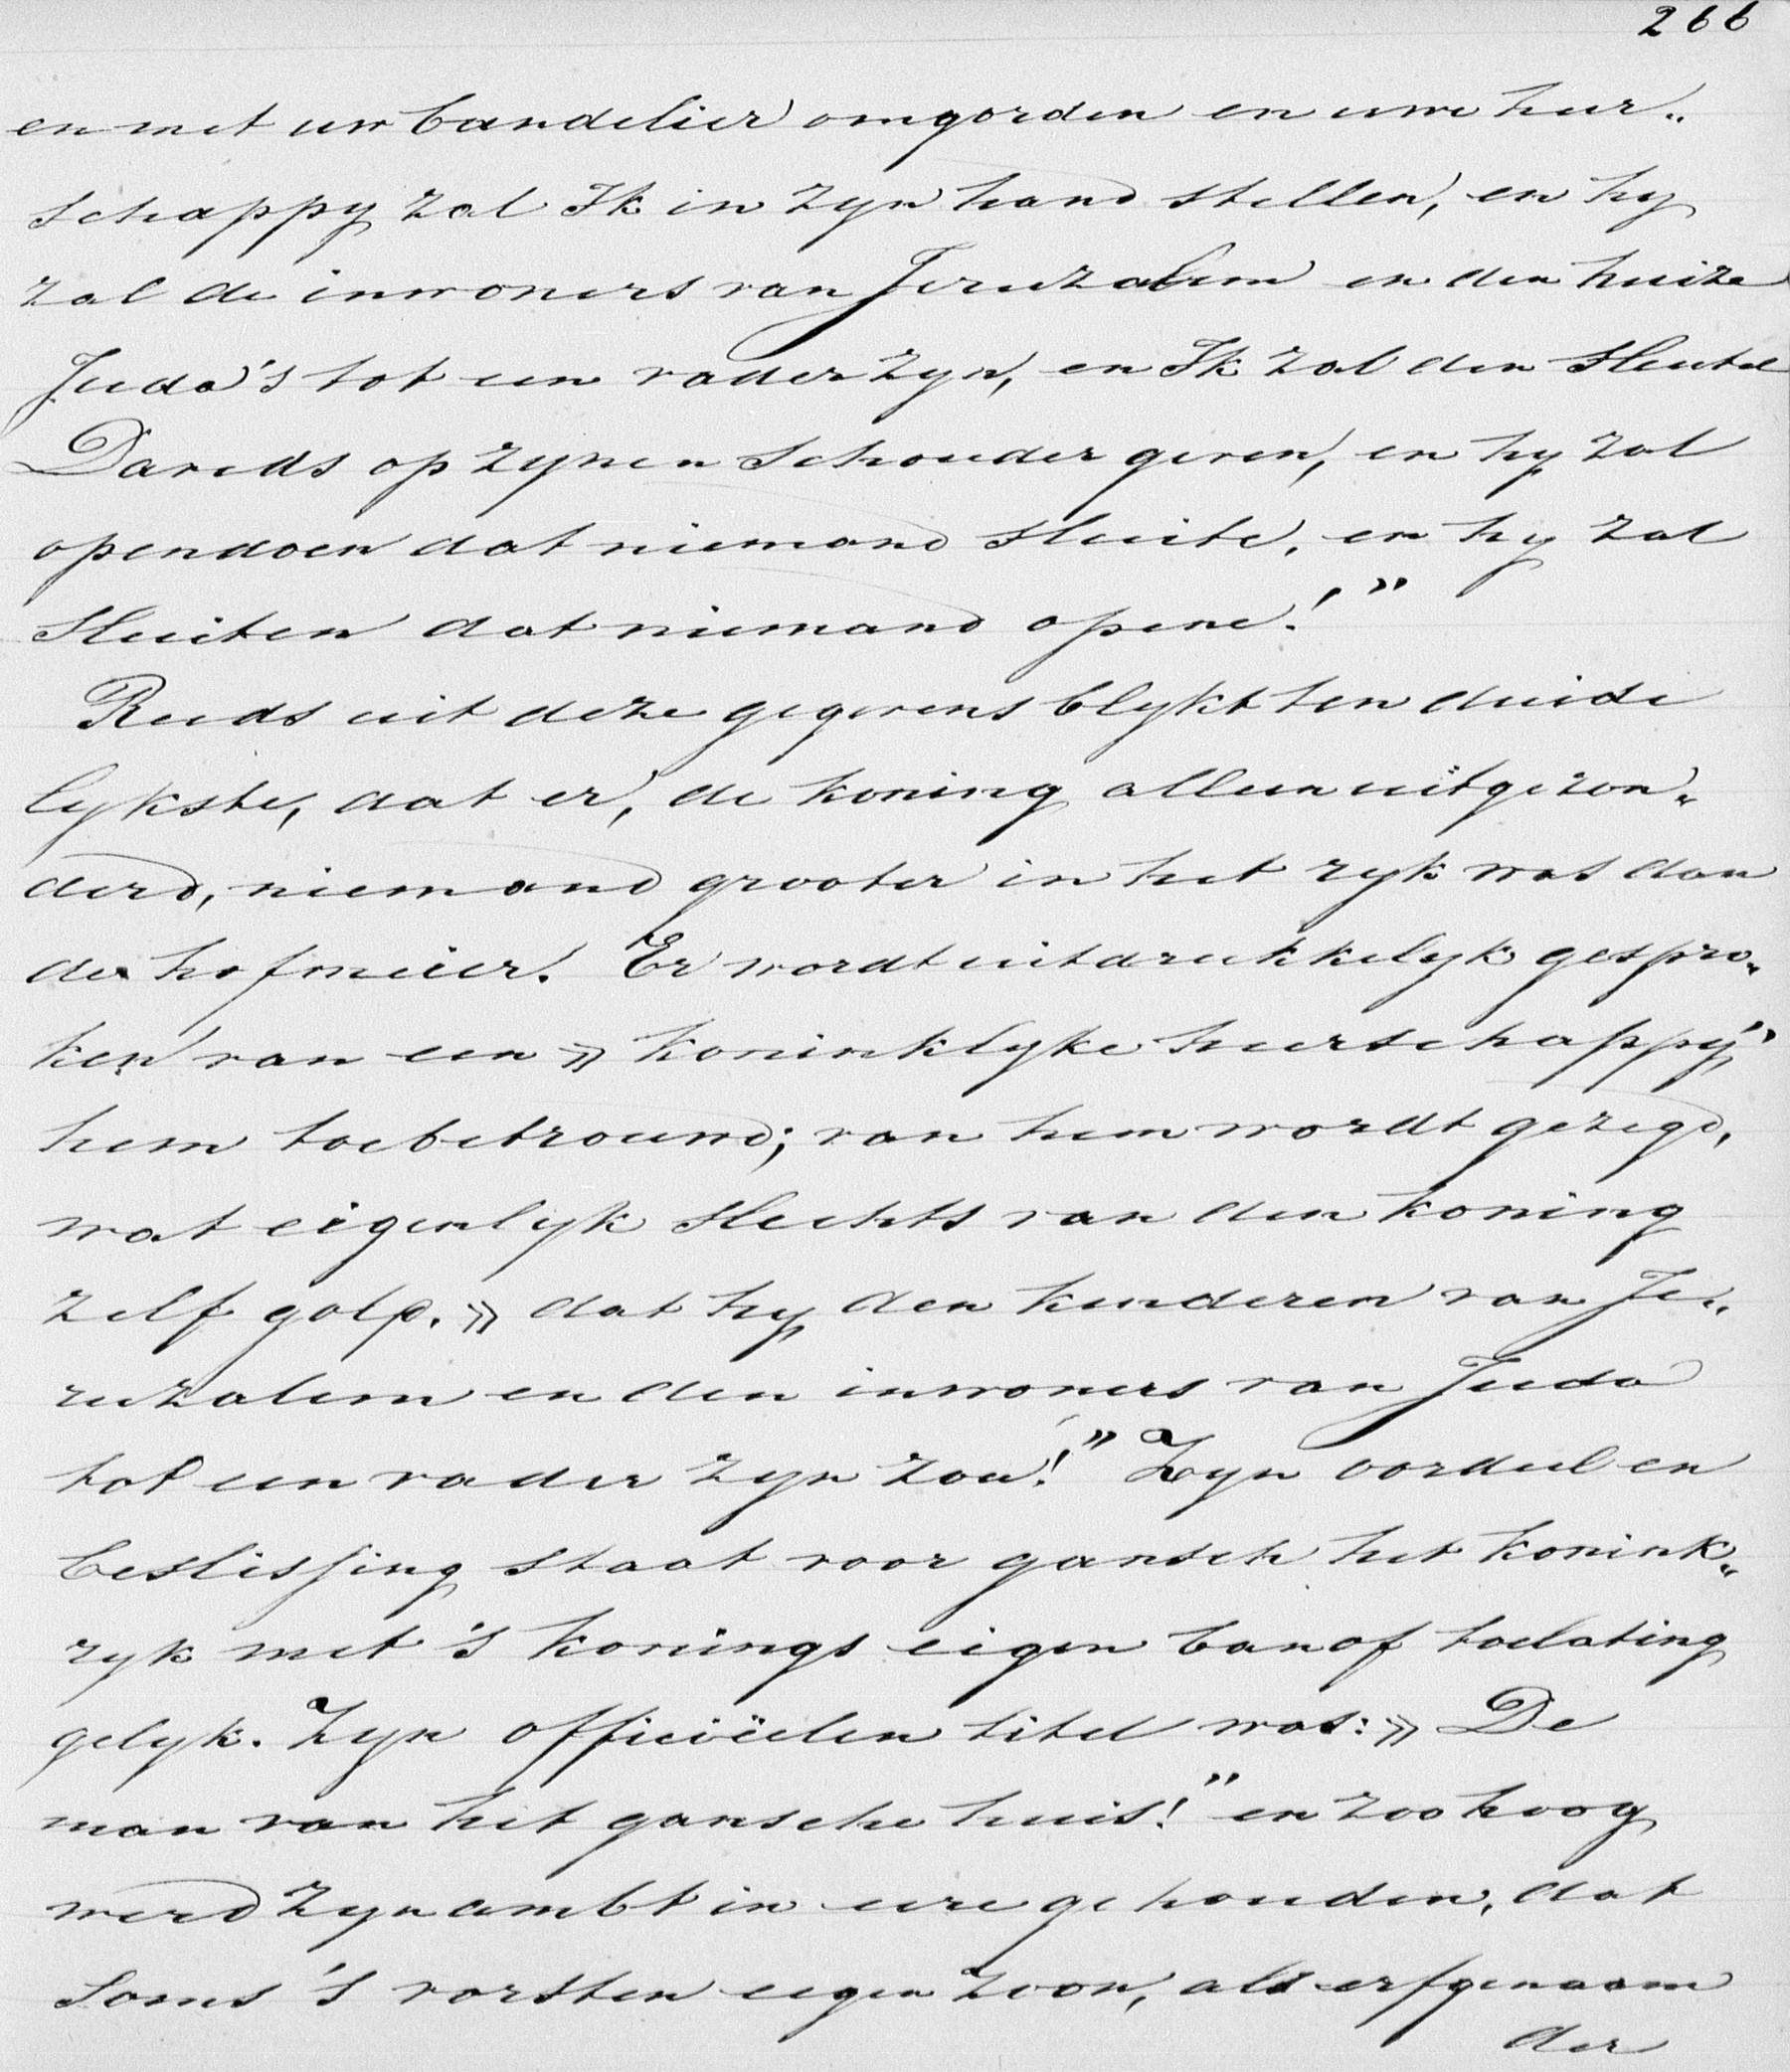 266
en met uw bandelier omgorden en uwe heer„
schappy zal Ik in zyn hand stellen, en hy
zal de inwoners van Jeruzalem en den huize
Juda's tot een vader zyn, en Ik zal den Sleutel
Davids op zynen Schouder geven, en hy zal
opendoen dat niemand sluite, en hy zal
sluiten dat niemand opene!”
Reeds uit deze gegevens blykt ten duide
lykste, dat er, de koning alleen uitgezon„
derd, niemand grooter in het ryk was dan
de hofmeier. Er wordt uitdrukkelyk gespro„
ken van een » koninklyke heerschappy,”
hem toebetrouwd; van hem wordt gezegd,
wat eigenlyk slechts van den koning
zelf gold. » dat hy den kinderen van Je„
ruzalem en den inwoners van Juda
tot een vader zyn zou!” Zyn oordeel en
beslissing staat voor gansch het konink„
ryk met 's konings eigen ban of toelating
gelyk. Zyn officiëelen titel was: » De
man van het gansche huis!” en zoo hoog
werd zyn ambt in eere gehouden, dat
soms 's vorsten eigen zoon, als erfgenaam
der